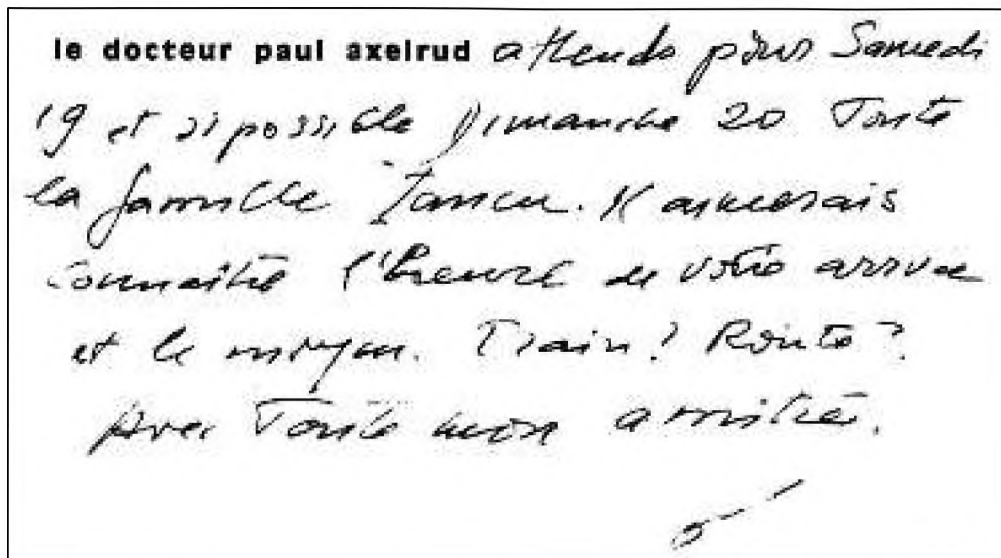 le docteur paul axelrud attends pour Samedi
19 et si possible Dimanche 20 Toute
la famille Iancu. J'aimerais
connaître l'heure de votre arrivée
et le moyen. Train? Route?
Avec Toute mon amitié.